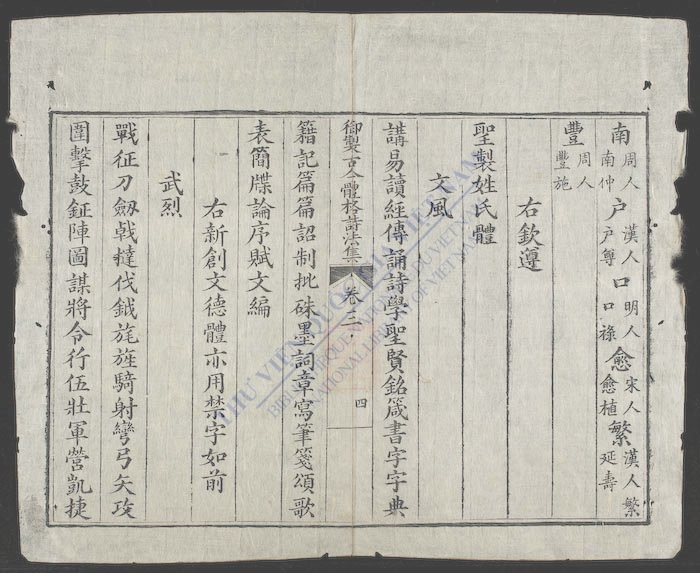 南 周人南仲 户 漢人户尊 口 明人口祿 愈 宋人愈植 繁 漢人繁延壽
豐 周人豐施
右欽遵
聖製姓氏體
文風
講易讀經傳誦詩學聖賢銘箴書字字典
御製古今體格詩法集 卷三 四
籍記篇篇詔制批硃墨詞章寫筆箋頌歌
表簡牒論序賦文編
右新創文德體亦用禁字如前
武烈
戰征刀劔戟撻伐鉞旄旌騎射彎弓矢攻
圍擊鼓鉦陣圖謀將令行伍壯軍營凱捷
THƯ VIỆN QUỐC GIA VIỆT NAM
BIBLIOTHÈQUE NATIONALE DU VIETNAM
NATIONAL LIBRARY OF VIETNAM